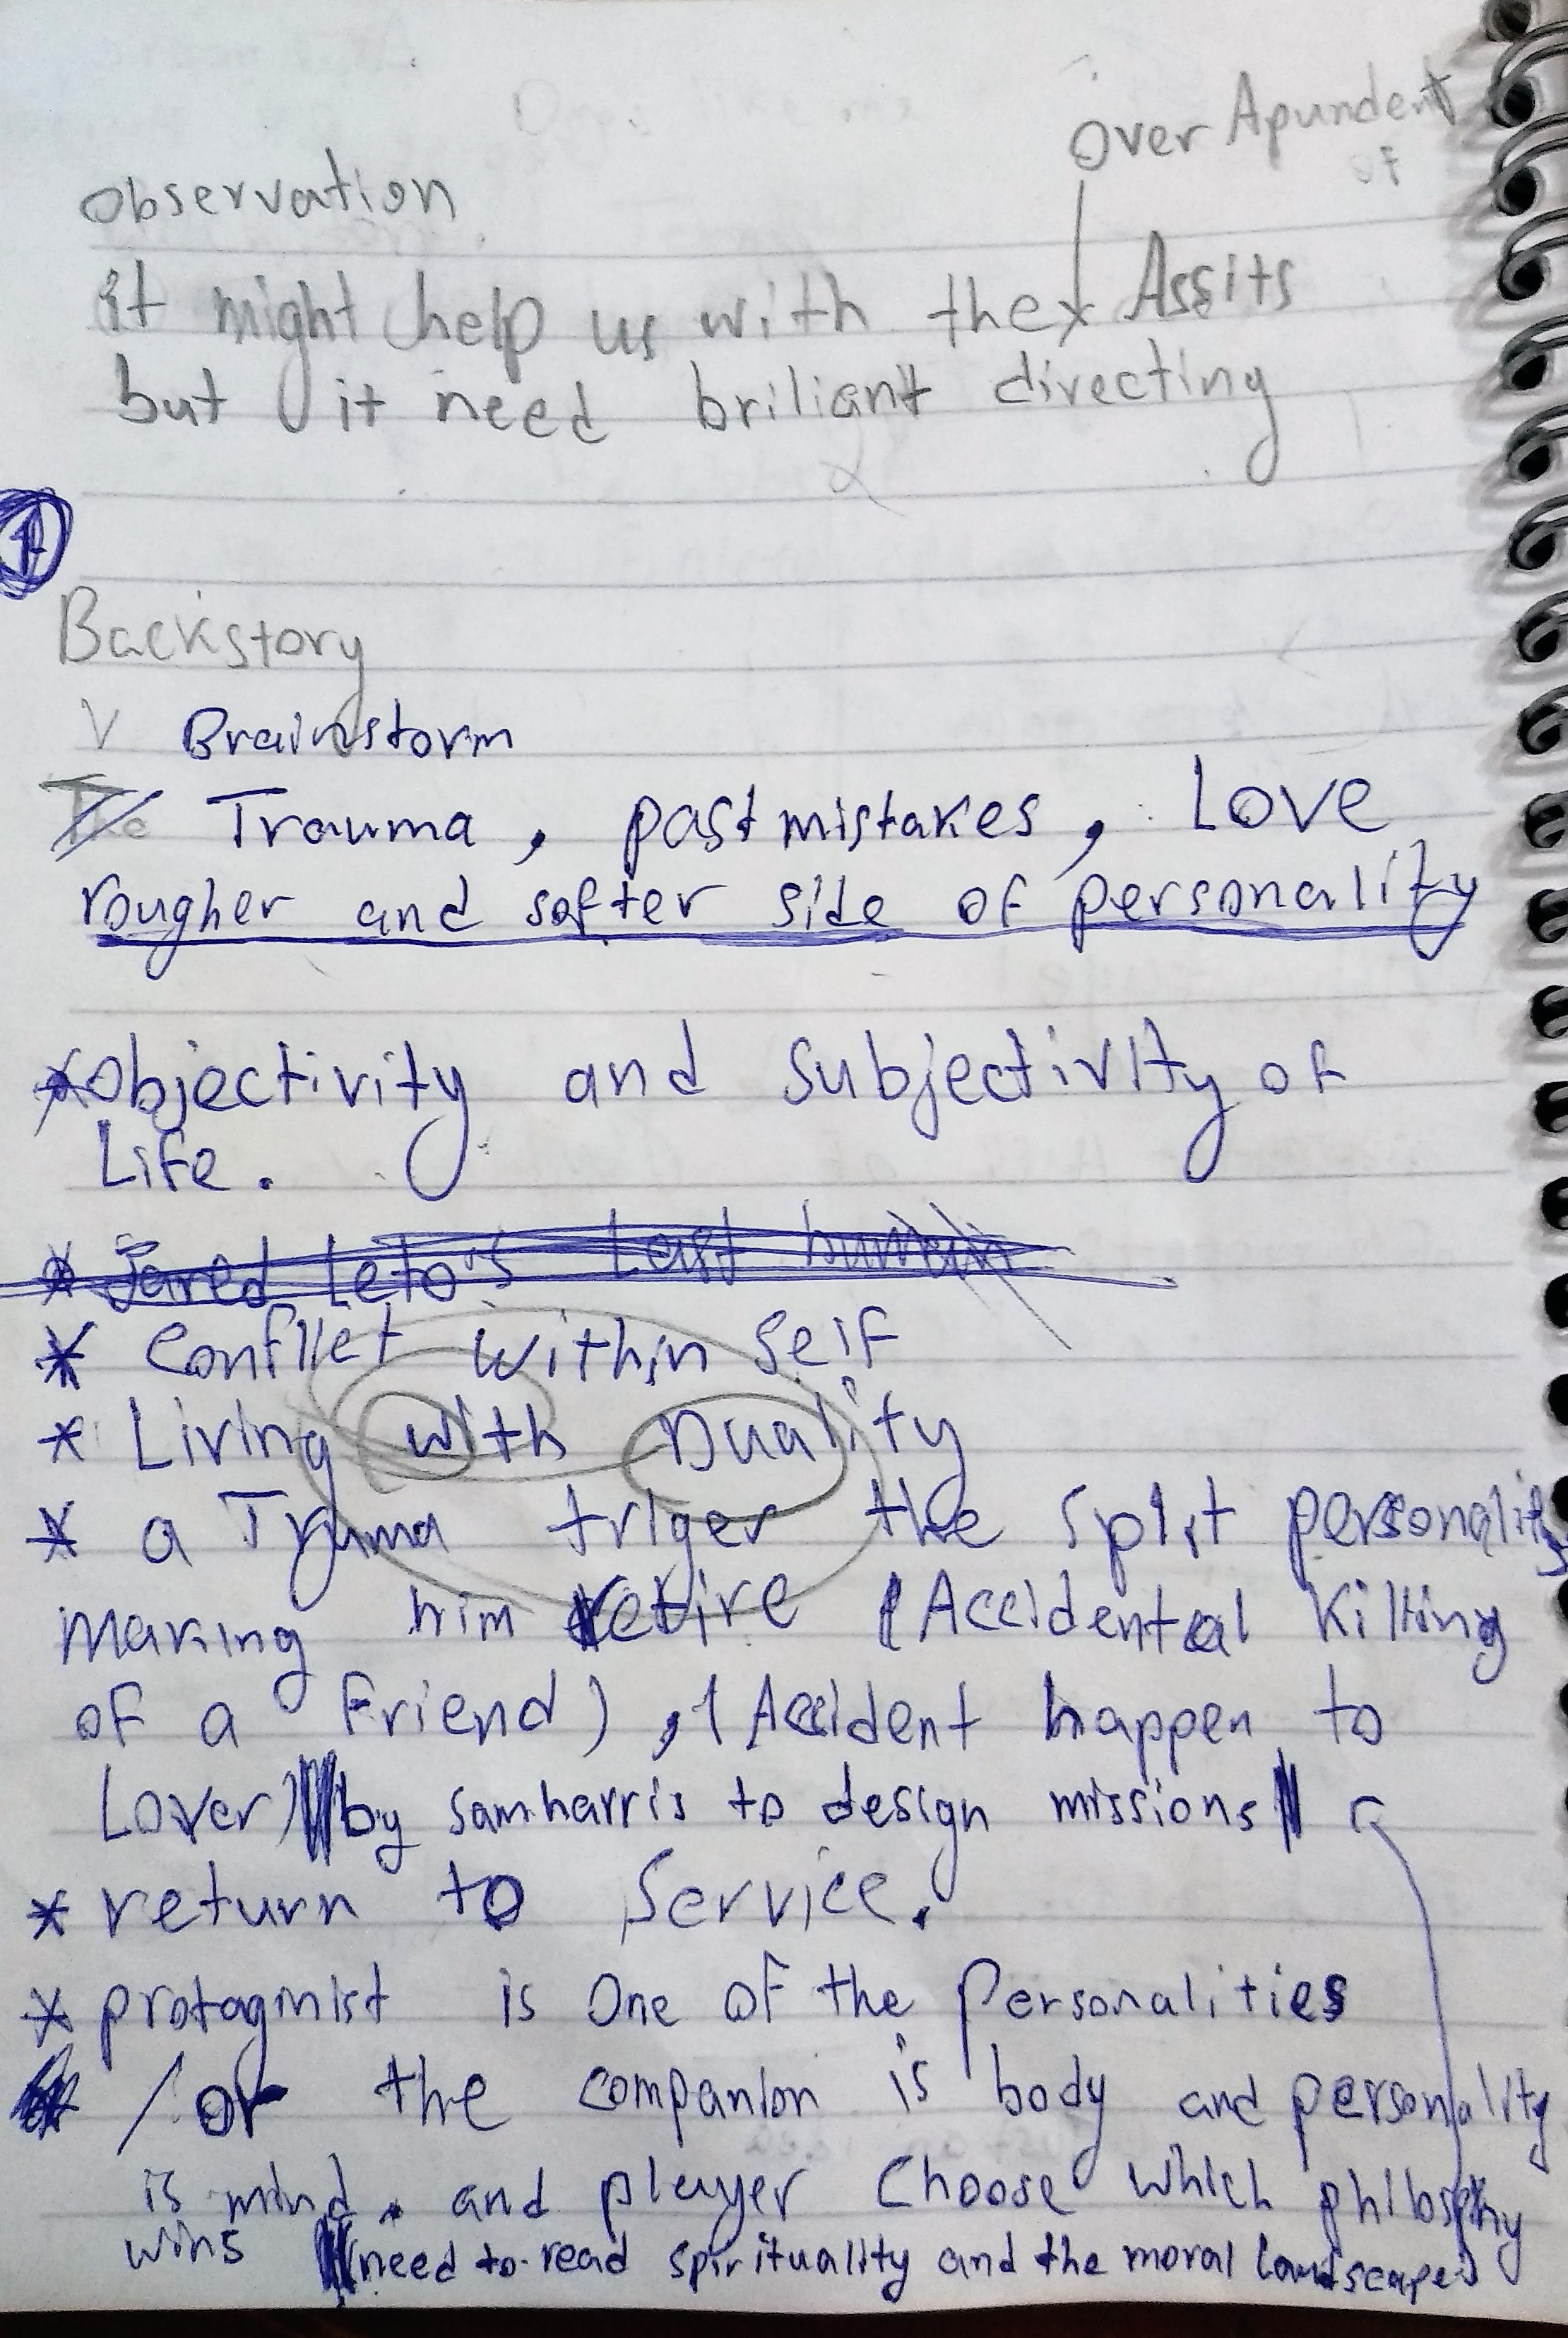 over Apundent
of
Observation
it might help us with the Assits
but it need briliant directing
1
Backstory
V Brainstorm
The Trauma, past mistakes, Love
rougher and softer side of personality
* objectivity and subjectivity of
Life.
* Jared Leto's Last human
* Conflict within Self
* Living with Duality
* a Truma triger the split personality
making him retire (Accidental killing
of a Friend), (Accident happen to
Lover) by samharris to design missions
* return to Service.
* protagnist is One of the Personalities
/ or the companion is body and personality
is mind. and player Choose which philosphy
wins need to read spirituality and the moral landscape